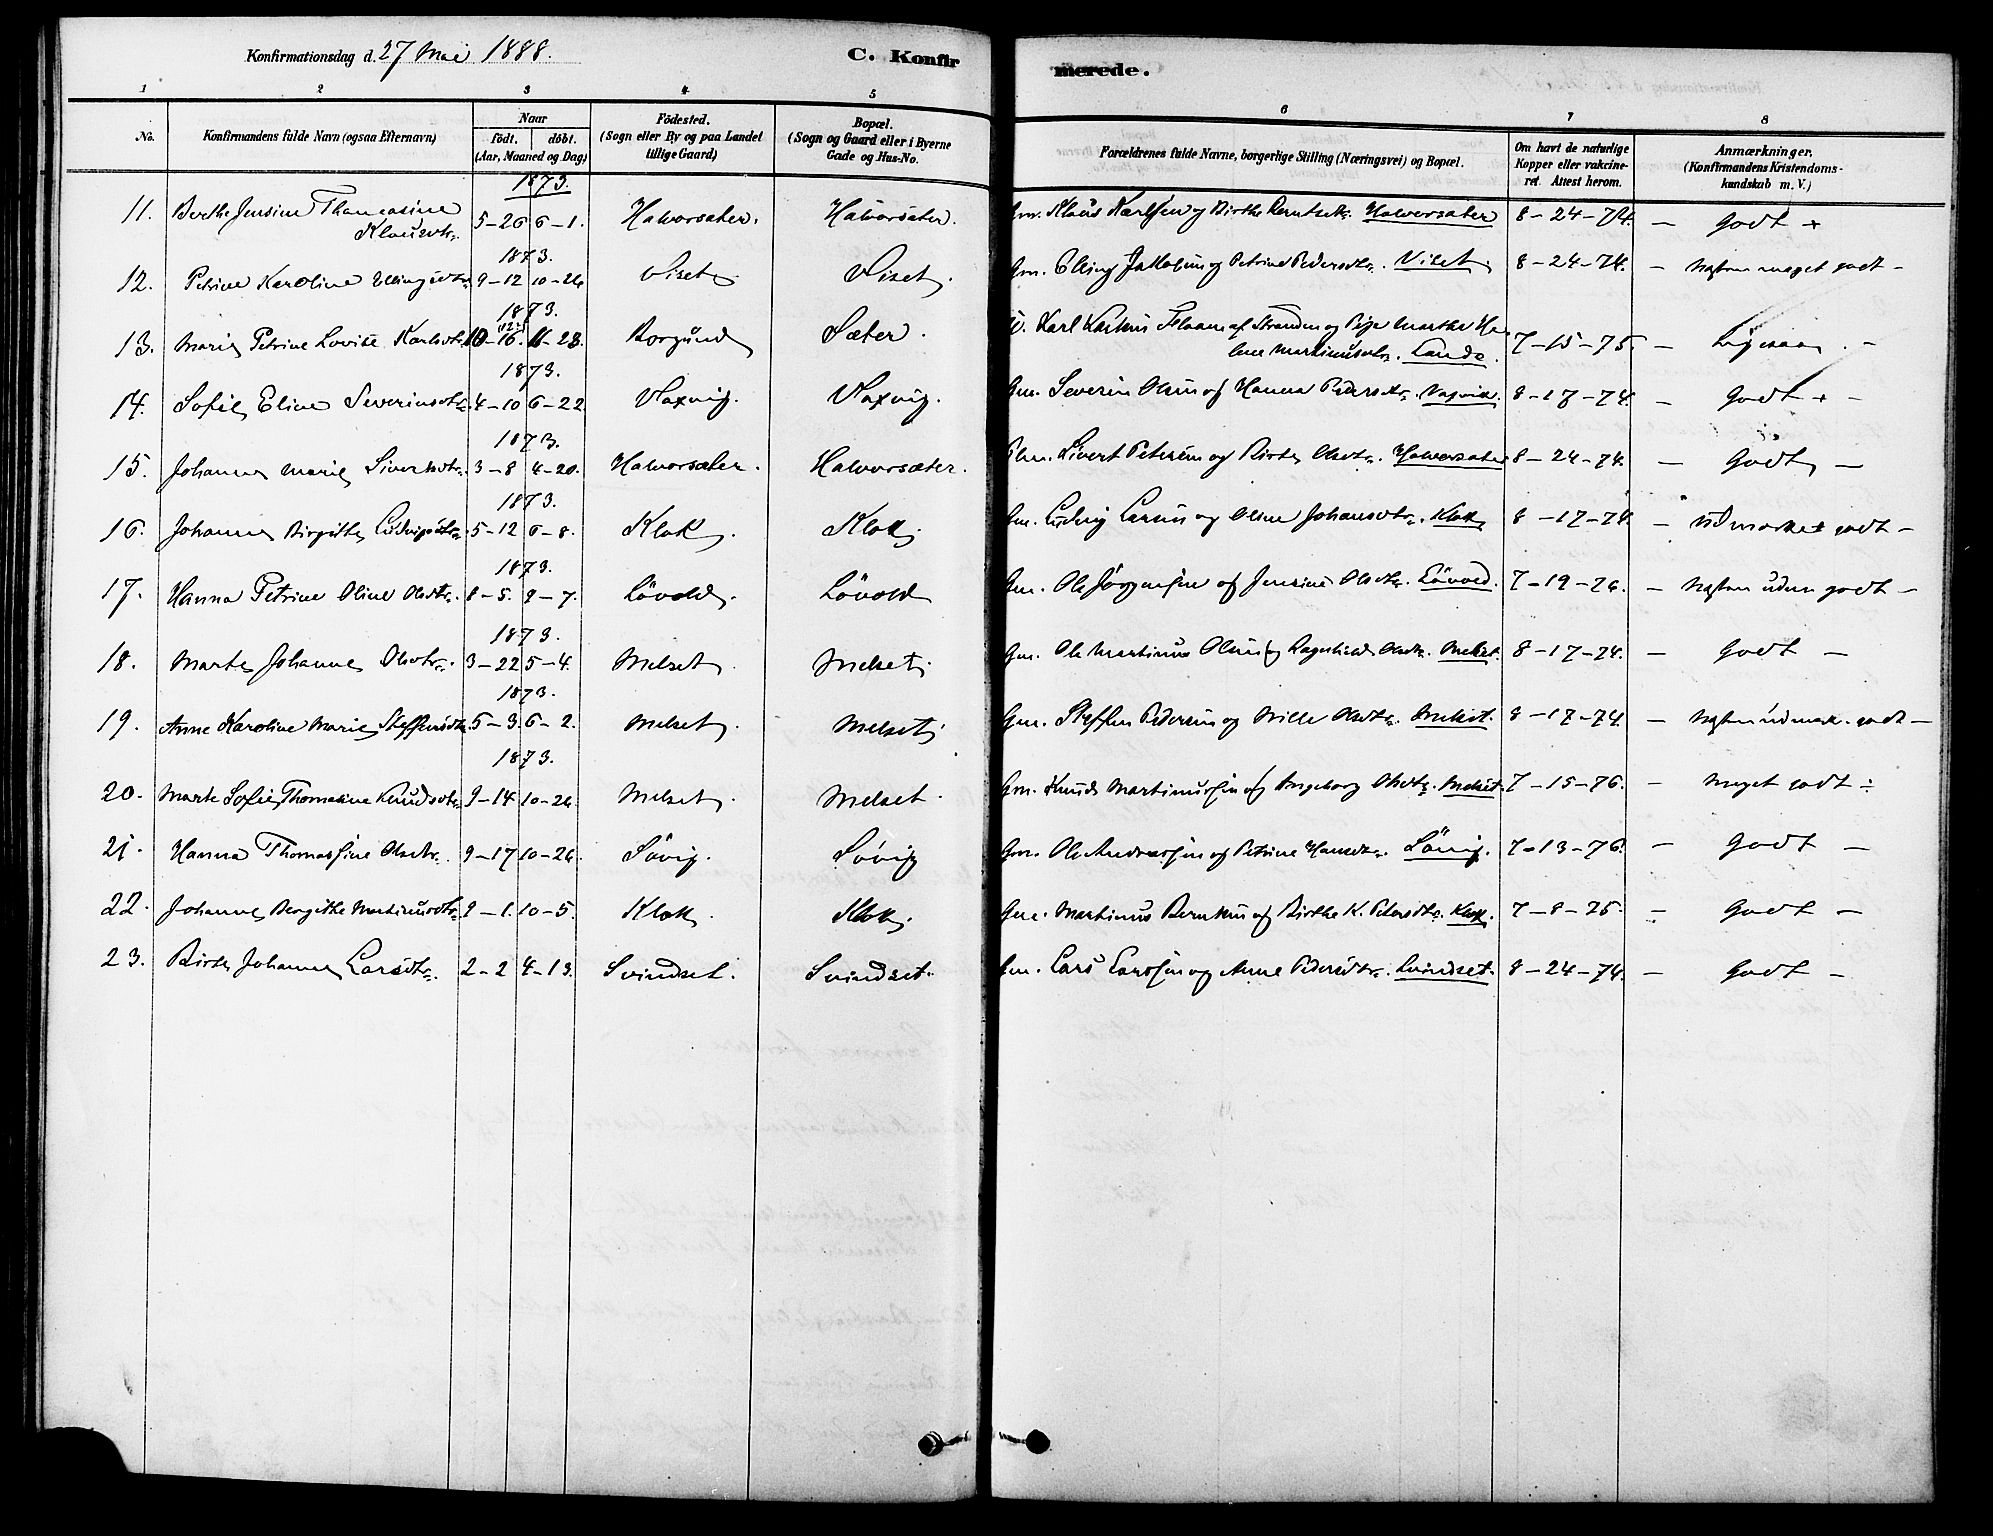 Konfirmationsdag d. 27 Mai 1888. C. Konfirmerede.
1 2 3 4 5 6 7 8
No. Konfirmandens fulde Navn (ogsaa Efternavn) Naar födt. döbt. (Aar, Maaned og Dag) Födested. (Sogn eller By og paa Landet tillige Gaard) Bopæl. (Sogn og Gaard eller i Byerne Gade og Hus-No. Forældrenes fulde Navne, borgerlige Stilling (Næringsvei) og Bopæl. Om havt de naturlige Kopper eller vakcineret. Attest herom. Anmærkninger. (Konfirmandens Kristendomskundskab m. V.)
1873.
11. Berthe Jensine Thomasine 5-26 6-1. Halvorsæter. Halvorsæter. Gm. Klaus Karlsen og Birthe Berntsdtr. Halvorsæter 8-24-74. - Godt +
Klausdtr.
1873.
12. Petrine Karoline Ellingsdtr. 9-12 10-26 Viset. Viset. Gm. Elling Jakobsen og Petrine Pedersdtr. Viset. 8-24-74. - Næsten meget godt -
1873.
13. Marie Petrine Lovise Karlsdtr. 10-16. 11-23. Borgund Sæter. Karl Flaam af Stranden og Pige Marthe He-
lene Martinusdtr. Lande. 7-15-75. - Ligesaa. -
1873.
14. Sofie Eline Severinsdtr. 4-10 6-22. Vaxvig. Vaxvig. Gm. Severin Olsen og Hanna Pedersdtr. Vaxvik. 8-17-74. - Godt + -
1873.
15. Johanne Marie Sivertsdtr. 3-8 4-20. Halvorsæter. Halvorsæter. Sivert Petersen og Birte Olsdtr. Halvorsæter 8-24-74. - Godt -
1873.
16. Johanne Birgitte Ludvigsdtr. 5-12 6-8. Klok. Klok. Gm. Ludvig Larsen og Oline Johansdtr. Klok 8-17-74. - Udmærket godt -
1873.
17. Hanna Petrine Oline Olsdtr. 8-5. 9-7. Lövold. Lövold Gm. Ole Jörgensen og Jensine Olsdtr. Lövold. 7-19-76. - Næsten udm. godt -
1873.
18. Marte Johanne Olsdtr. 3-22 5-4. Melset. Melset. Gm. Ole Martinus Olsen og Ragnhild Olsdtr. Melset. 8-17-74. - Godt -
1873.
19. Anne Karoline Marie Steffensdtr. 5-3. 6-2. Melset. Melset. Gm. Steffen Pedersen og Olsdtr. Melset. 8-17-74. - Næsten udmærk. godt -
1873.
20. Marte Sofie Thomasine Knudsdtr. 9-14 10-26. Melset. Melset. Gm. Knud Martinussen og Ingeborg Olsdtr. Melset. 7-15-76. - Meget godt ÷
21. Hanna Thomassine Olsdtr. 9-17 10-26. Sövig. Sövig Gm. Ole Andreassen og Petrine Hansdtr. Sövig. 7-13-76. - Godt -
22. Johanne Bergithe Martinusdtr. 9-1. 10-5. Klok. Klok. Gm. Martinus Berntsen og Birthe K. Petersdtr. Klok. 7-8-75. - Godt -
23. Birte Johanne Larsdtr. 2-2 4-13. Svindset. Svindset. Gm. Lars Larssen og Anne Pedersdtr. Svindset. 8-24-74. - Godt -